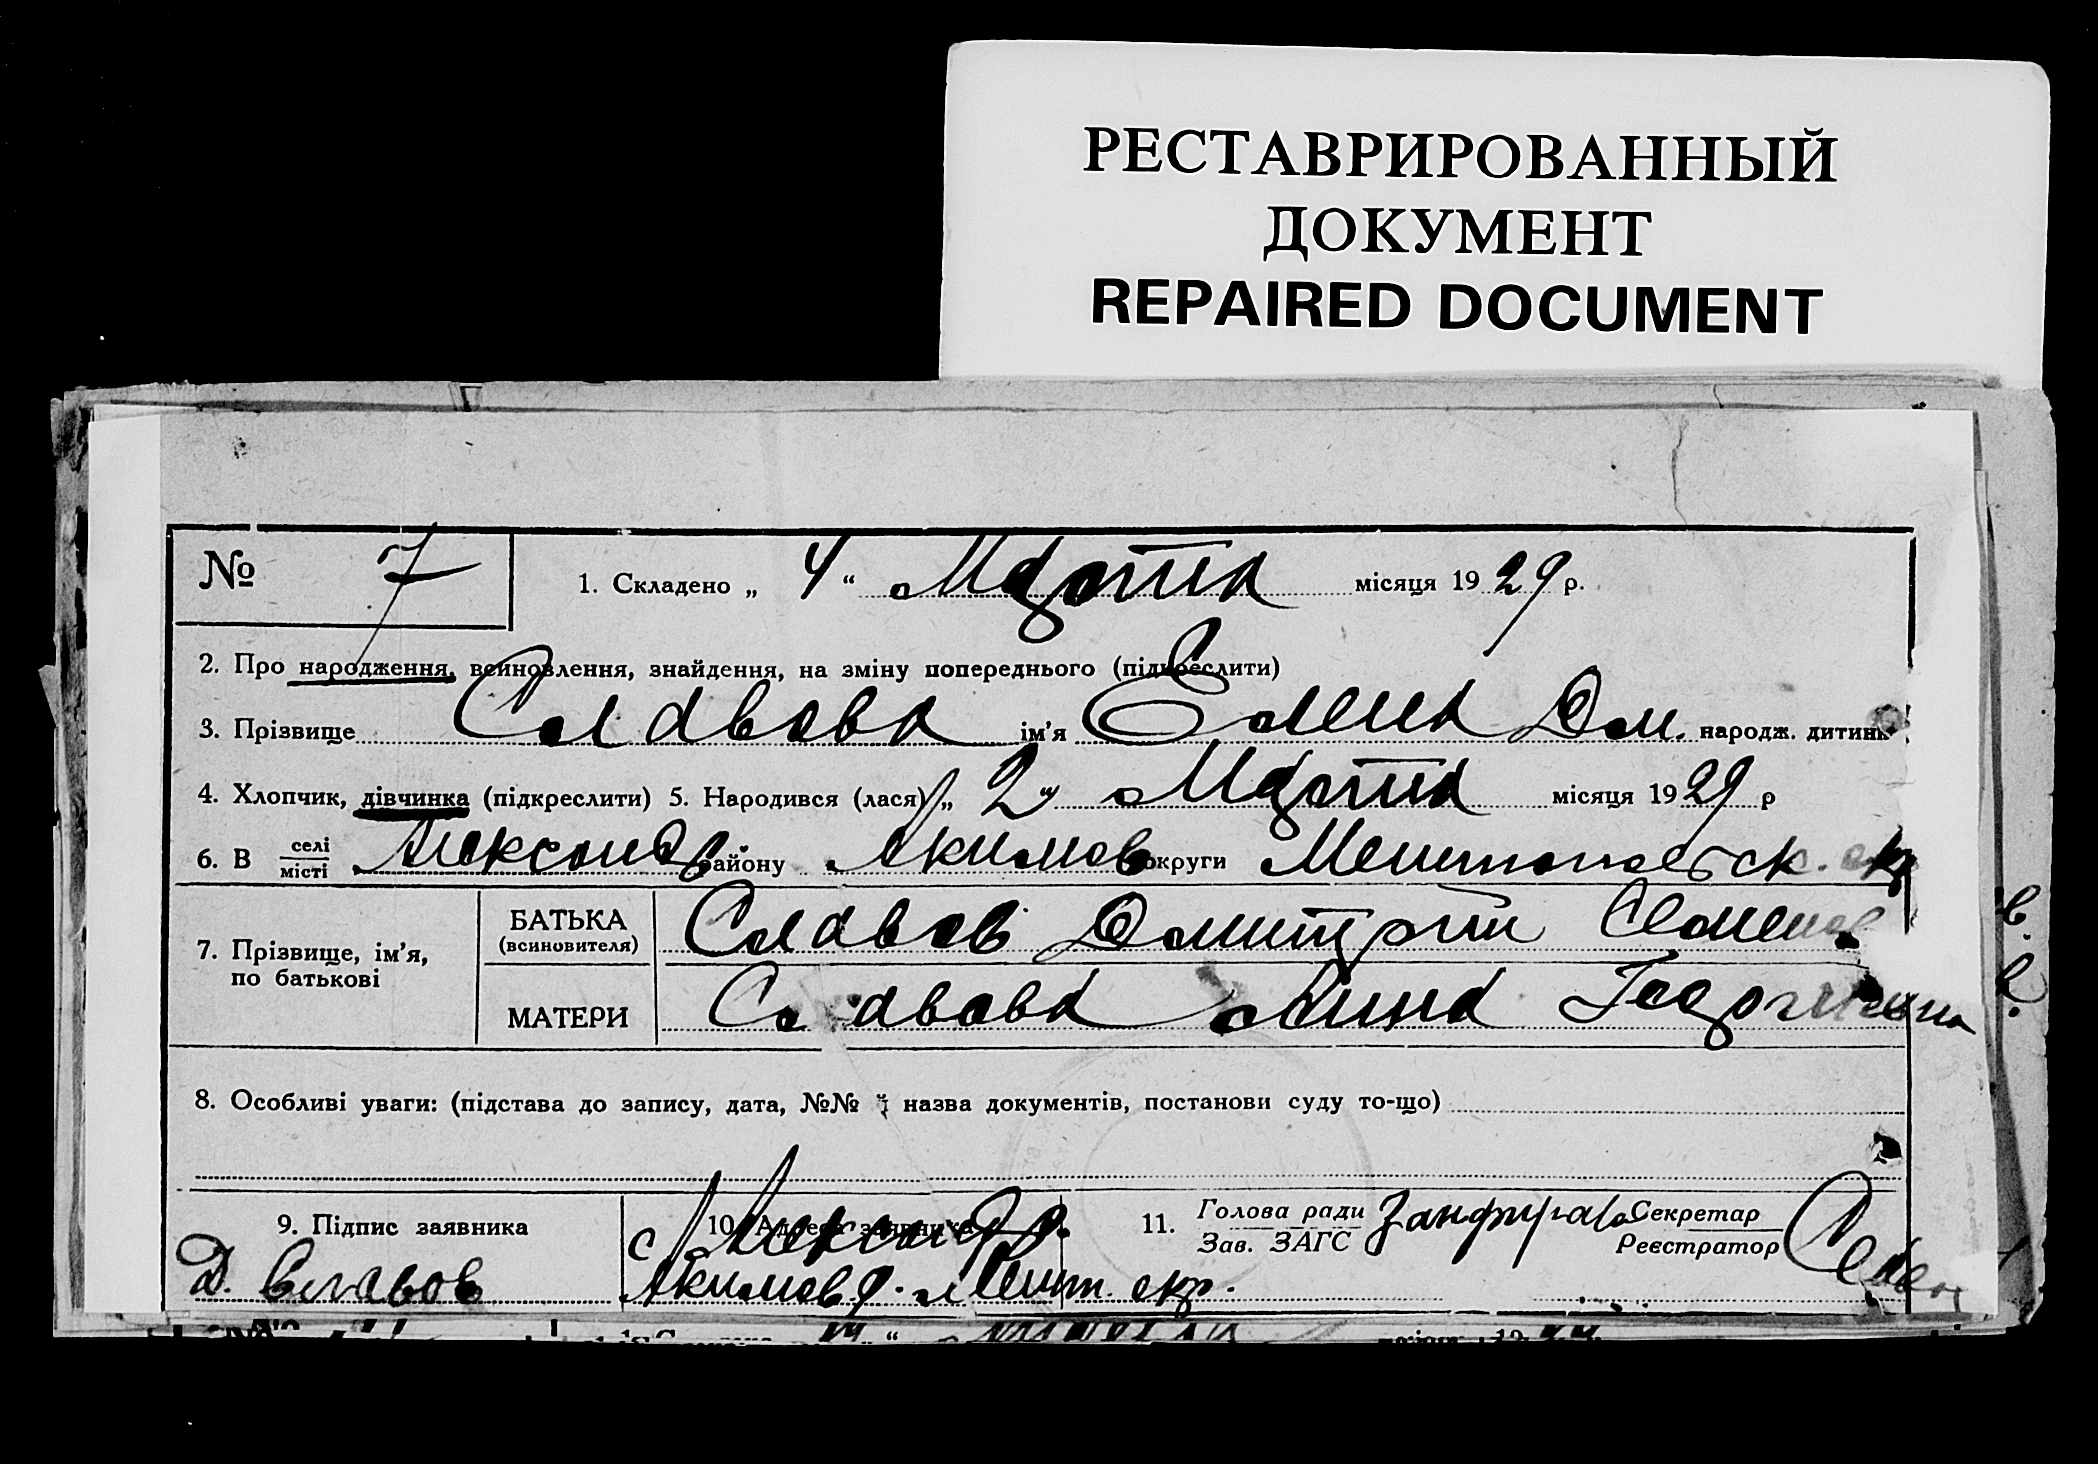 РЕСТАВРИРОВАННЫЙ
ДОКУМЕНТ
REPAIRED DOCUMENT
№ 7
1. Складено „ 4 “ Марта місяця 1929 р.
2. Про народження, всиновлення, знайдення, на зміну попереднього (підкреслити)
3. Прізвище Славова ім'я Елена Дм. народж. дитини
4. Хлопчик, дівчинка (підкреслити) 5. Народився (лася) „ 2 “ Марта місяця 1929 р
6. В селі місті Александ району Акимов округи Мелитопольск. окр
7. Прізвище, ім'я, по батькові
БАТЬКА (всиновителя) Славов Дмитрий Семенов
МАТЕРИ Славова Анна Георгиевна
8. Особливі уваги: (підстава до запису, дата, №№ й назва документів, постанови суду то-що)
9. Підпис заявника 10. Адреса заявника 11. Голова ради Зав. ЗАГС Секретар Реєстратор
с Александр.
Д. Славов Акимов р. Мелит. окр.